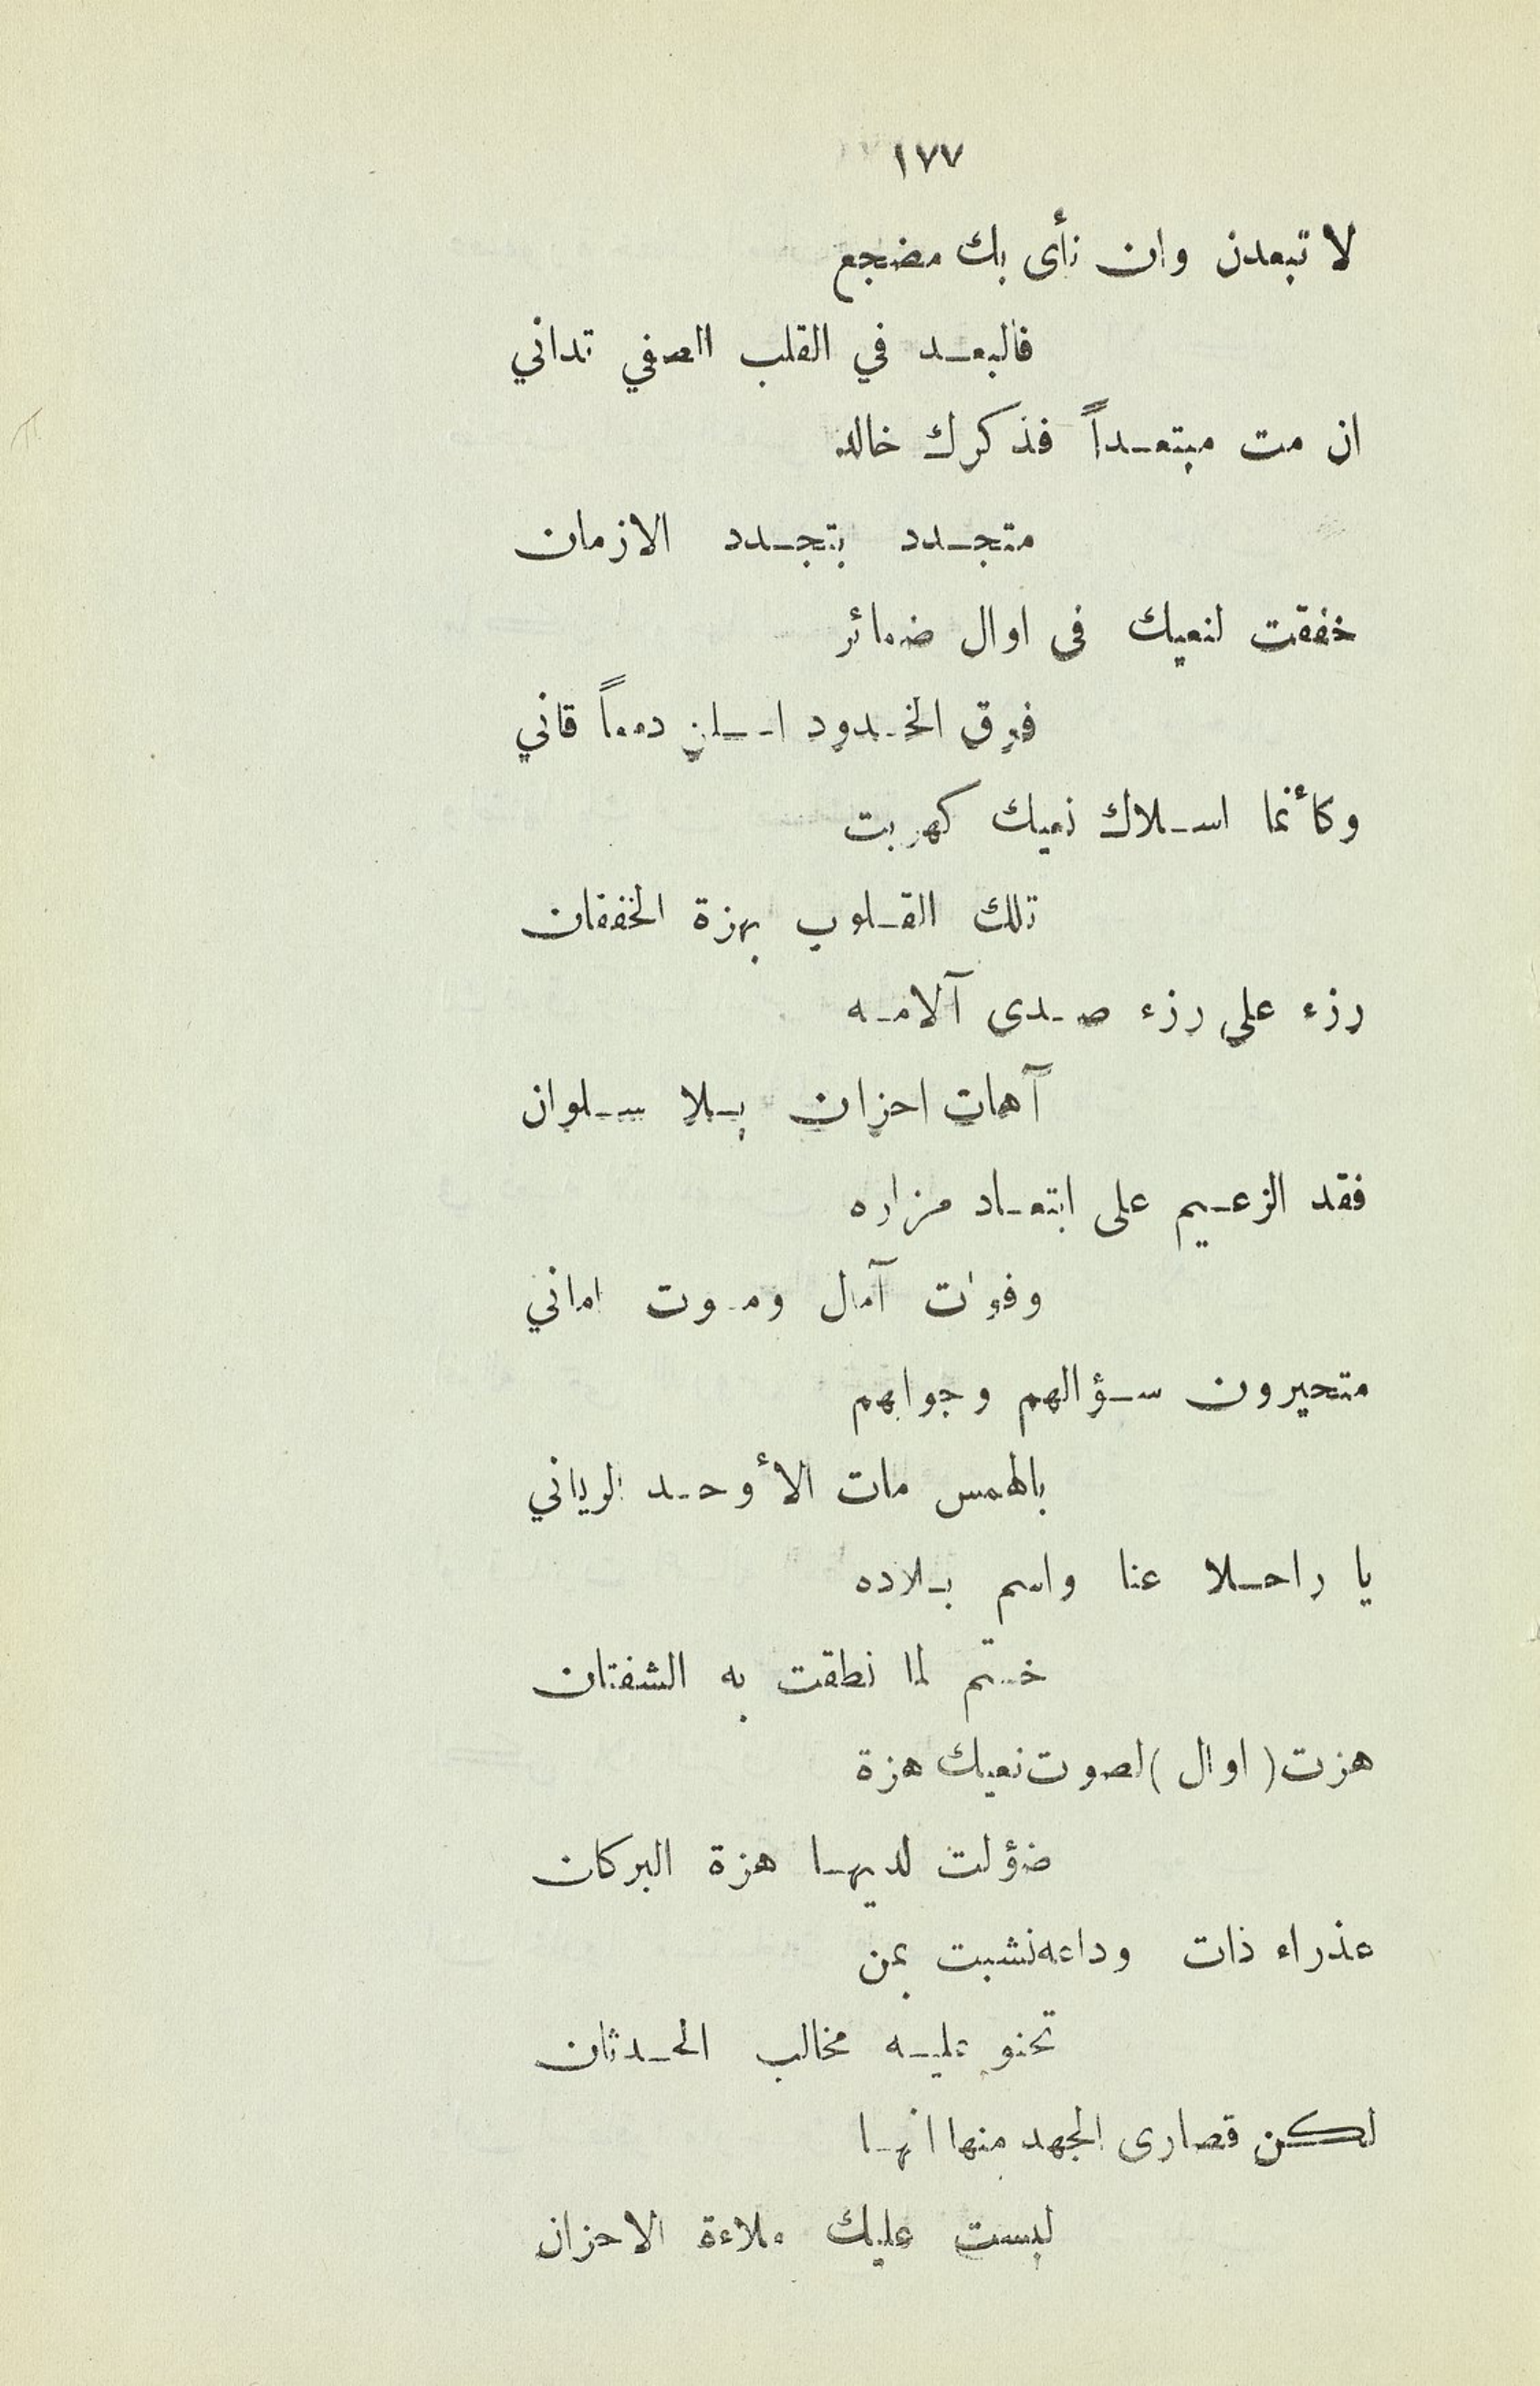 ١٧٧
لا تبعدن وان نأى بك مضجع
فالبعد في القلب الصفي تداني
ان مت مبتعداً فذكرك خالد
متجدد بتجدد الازمان
خفقت لنعيك فى اوال ضمائر
فوق الخدود اسلن دمعاً قاني
وكأنما اسلاك نعيك كهربت
تلك القلوب بهزة الخفقان
رزء على رزء صدى آلامه
آهات احزان بلا سلوان
فقد الزعيم على ابتعاد مزاره
وفوات آمال وموت اماني
متحيرون سؤالهم وجوابهم
بالهمس مات الأوحد الرباني
يا راحلا عنا واسم بلاده
ختم لما نطقت به الشفتان
هزت ( اوال ) لصوت نعيك هزة
ضؤلت لديها هزة البركان
عذراء ذات وداعه نشبت بمن
تحنو عليه مخالب الحدثان
لكن قصارى الجهد منها انها
لبست عليك ملاءة الاحزان